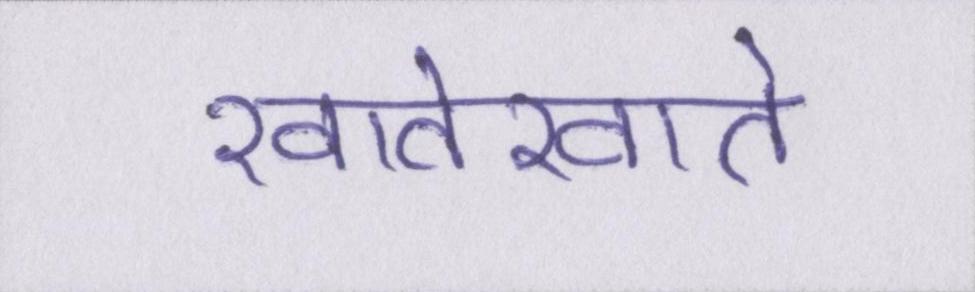 खातेखाते